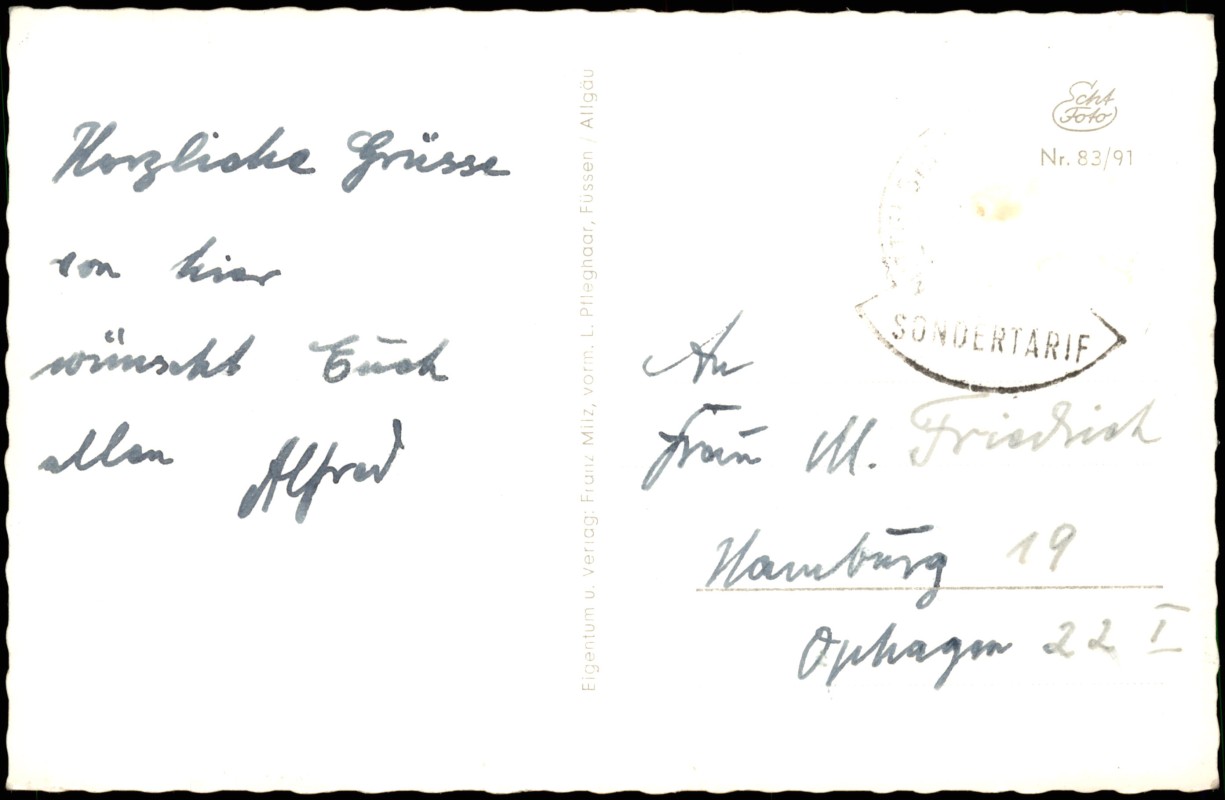 Herzliche Grüsse
von hier
wünscht Euch
allen Alfred
Eigentum u. Verlag: Franz Milz, vorm. L. Pfleghaar, Füssen / Allgäu
Echt
Foto
Nr. 83/91
SONDERTARIF
An
Frau M. Friedrich
Hamburg 19
Ophagen 22 I